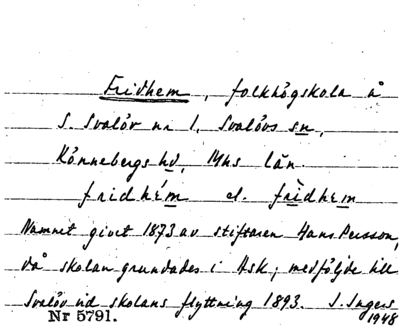 Fridhem, folkhögskola å
S. Svalöv nr 1, Svalövs sn,
Rönnebergs hd, Mhs län.
fridhém el. frìdhem
Namnet givet 1873 av stiftaren Hans Persson,
då skolan grundades i Hsk; medföljde till
Svalöv vid skolans flyttning 1893. I. Ingers
Nr 5791. 1948